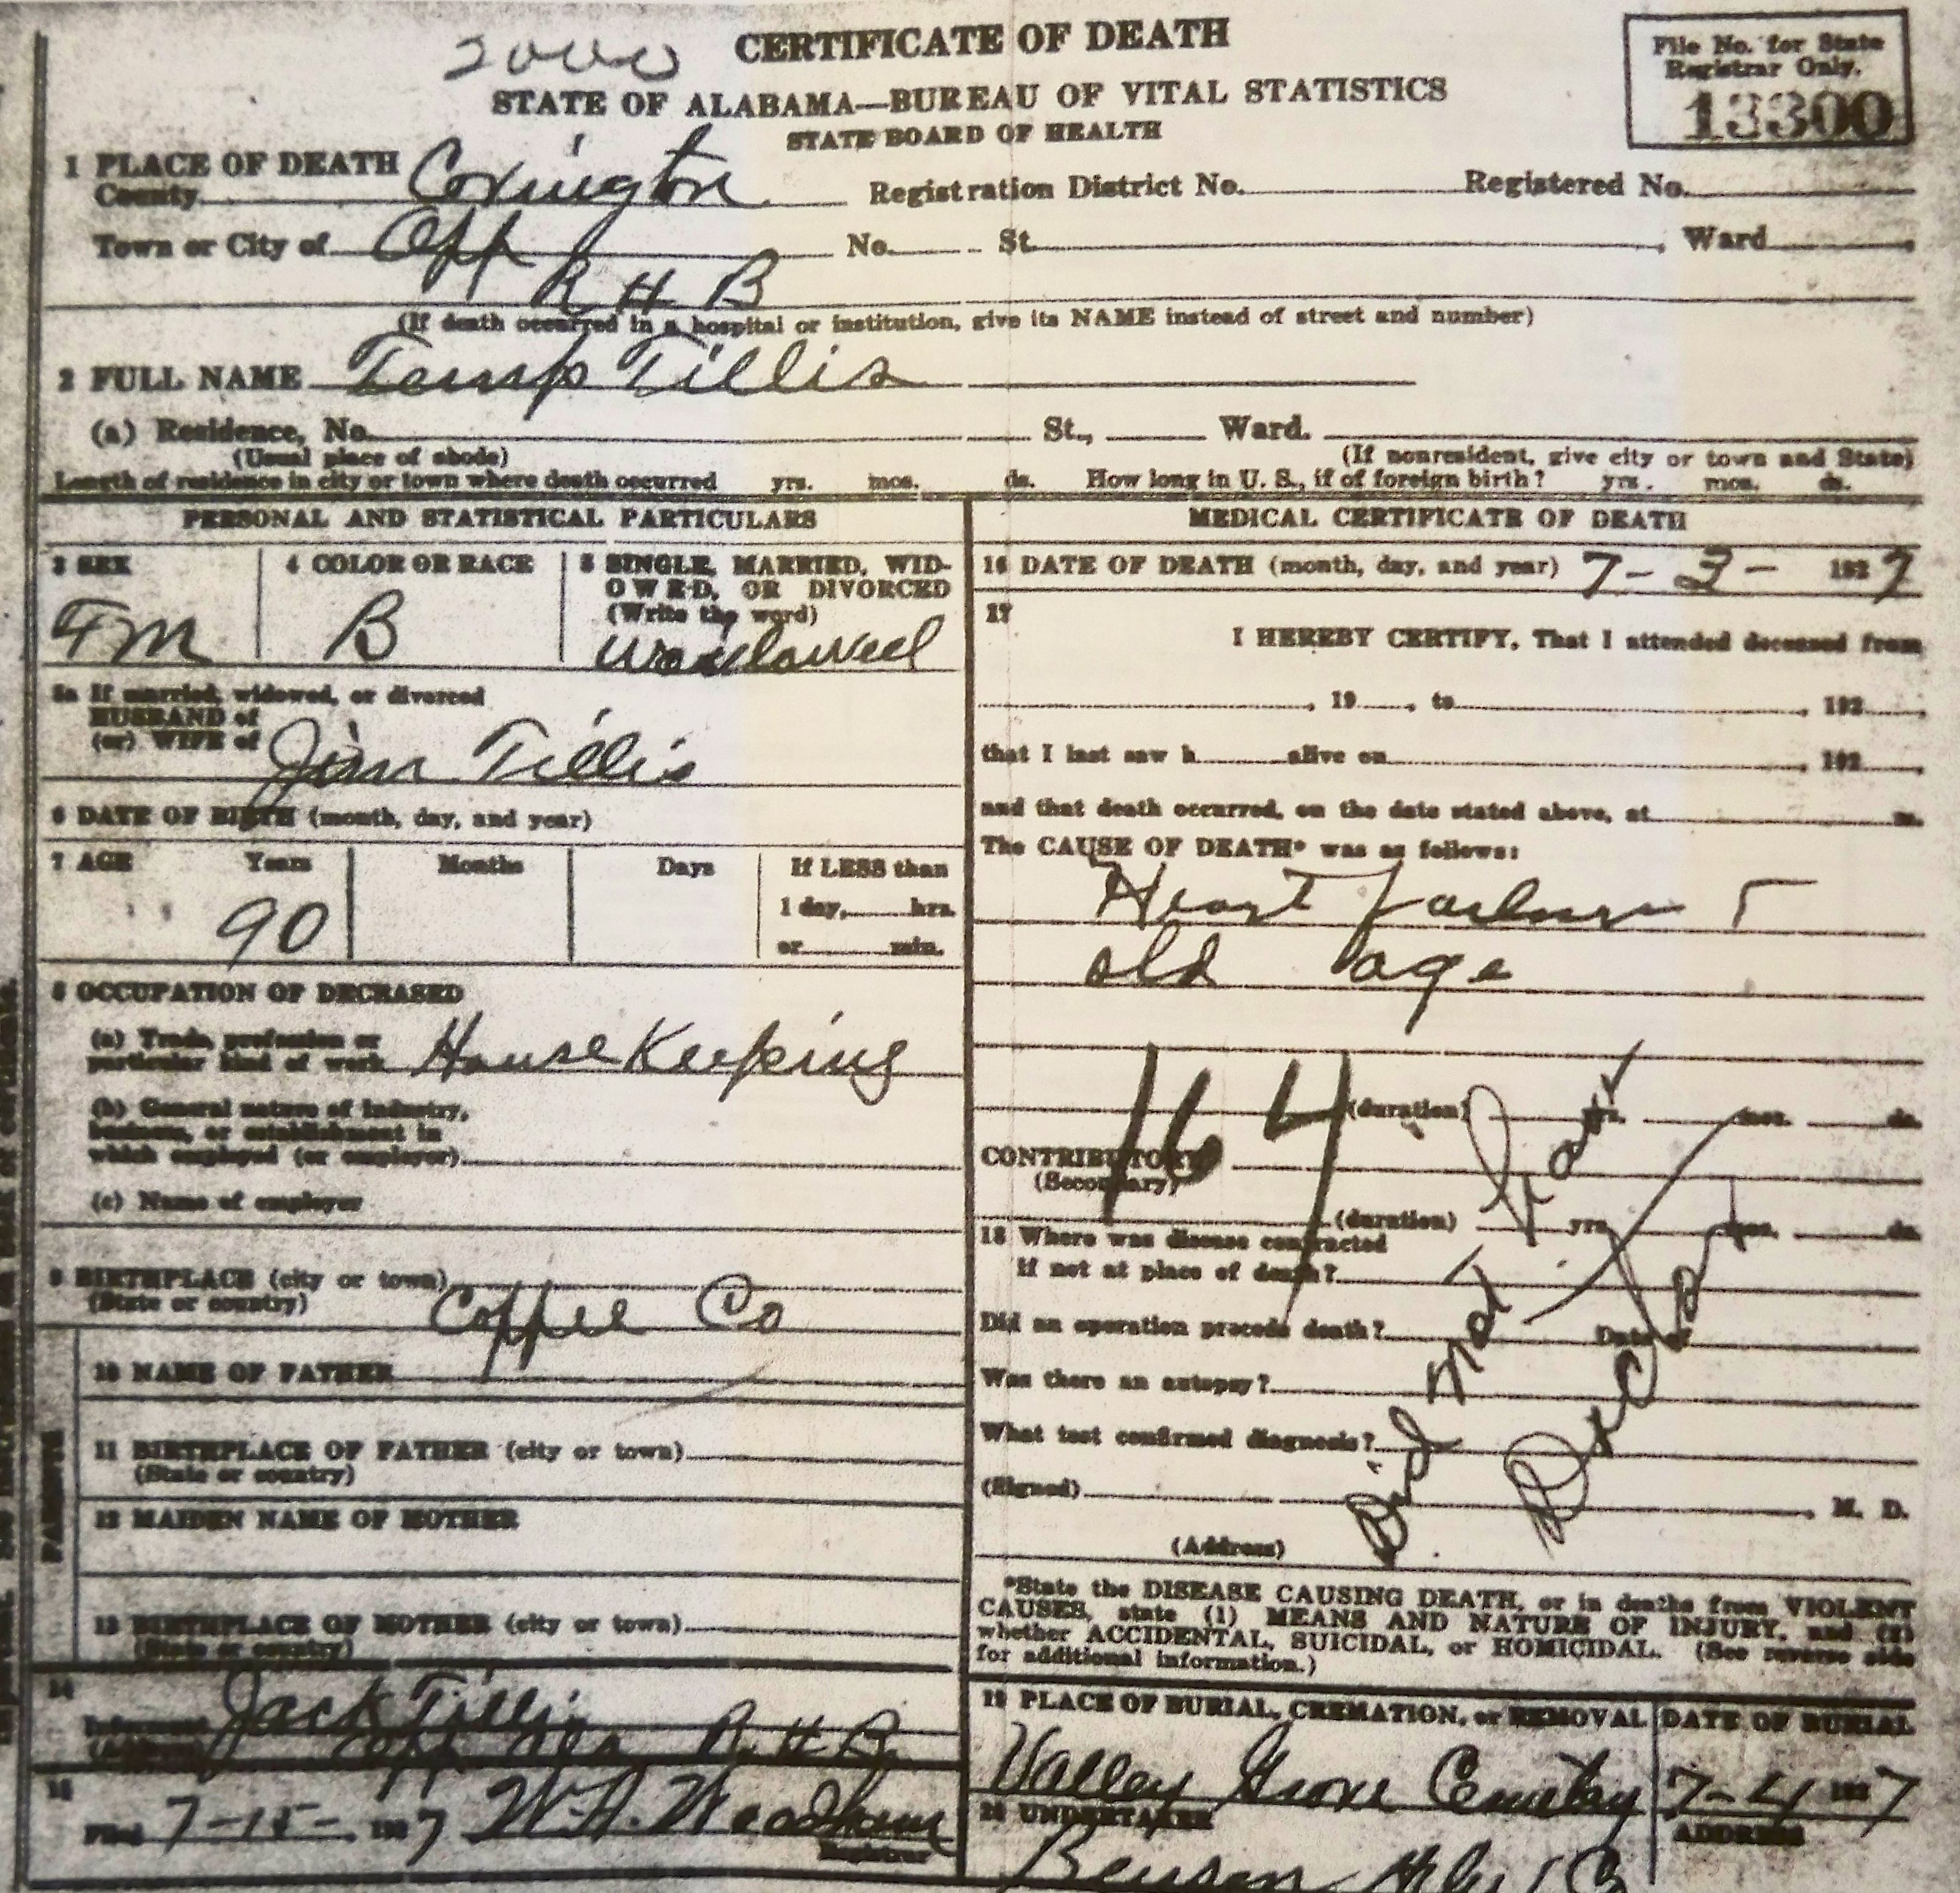 2000 CERTIFICATE OF DEATH
File No. for State
Registrar Only.
13300
STATE OF ALABAMA—BUREAU OF VITAL STATISTICS
STATE BOARD OF HEALTH
1 PLACE OF DEATH
County Covington Registration District No. Registered No.
Town or City of Opp No. St. , Ward ,
R H B
(If death occurred in a hospital or institution, give its NAME instead of street and number)
2 FULL NAME Temp Tillis
(a) Residence, No. St., Ward.
(Usual place of abode) (If nonresident, give city or town and State)
Length of residence in city or town where death occurred yrs. mos. ds. How long in U. S., if of foreign birth? yrs. mos. ds.
PERSONAL AND STATISTICAL PARTICULARS
3 SEX
Fm
4 COLOR OR RACE
B
5 SINGLE, MARRIED, WID-
OWED, OR DIVORCED
(Write the word)
5a If married, widowed, or divorced
HUSBAND of
(or) WIFE of Jim Tillis
6 DATE OF BIRTH (month, day, and year)
7 AGE Years Months Days If LESS than
1 day, hrs.
or min.
90
8 OCCUPATION OF DECEASED
(a) Trade, profession or
particular kind of work House Keeping
(b) General nature of Industry,
business, or establishment in
which employed (or employer)
(c) Name of employer
9 BIRTHPLACE (city or town)
(State or country) Coffee Co
PARENTS
10 NAME OF FATHER
11 BIRTHPLACE OF FATHER (city or town)
(State or country)
12 MAIDEN NAME OF MOTHER
13 BIRTHPLACE OF MOTHER (city or town)
(State or country)
14
Informant Jack Tillis
(Address) Opp Ala R. H. B.
15
Filed 7-15-, 1927 W. A. Weadham
Registrar
MEDICAL CERTIFICATE OF DEATH
16 DATE OF DEATH (month, day, and year) 7-3- 1927
17
I HEREBY CERTIFY, That I attended deceased from
, 19 , to , 192 ,
that I last saw h alive on , 192 ,
and that death occurred, on the date stated above, at m.
The CAUSE OF DEATH* was as follows:
Heart failure
old age
164
(duration) yrs. mos. ds.
CONTRIBUTORY
(Secondary)
(duration) yrs. mos. ds.
18 Where was disease contracted
if not at place of death?
Did an operation precede death? Date of
Was there an autopsy?
What test confirmed diagnosis?
(Signed) , M. D.
(Address)
Did not have
Doctor
*State the DISEASE CAUSING DEATH, or in deaths from VIOLENT
CAUSES, state (1) MEANS AND NATURE OF INJURY, and (2)
whether ACCIDENTAL, SUICIDAL, or HOMICIDAL. (See reverse side
for additional information.)
19 PLACE OF BURIAL, CREMATION, or REMOVAL
Valley Grove Cemetery
DATE OF BURIAL
7-4 1927
20 UNDERTAKER
Benson
ADDRESS